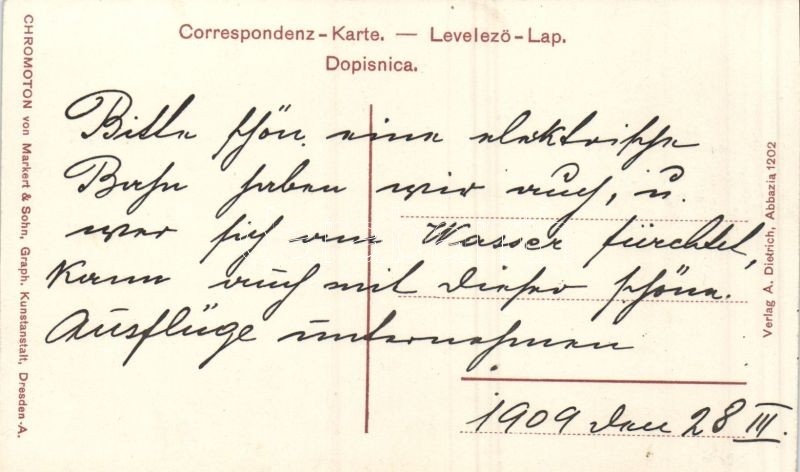 Correspondenz-Karte. — Levelezö-Lap.
Dopisnica.
Bitte schön, eine elektrische
Bahn haben wir auch, u.
wer sich am Wasser fürchtet,
kann auch mit dieser schöne
Ausflüge unternehmen
1909 den 28 III.
CHROMOTON von Markert & Sohn, Graph. Kunstanstalt, Dresden-A.
Verlag A. Dietrich, Abbazia 1202